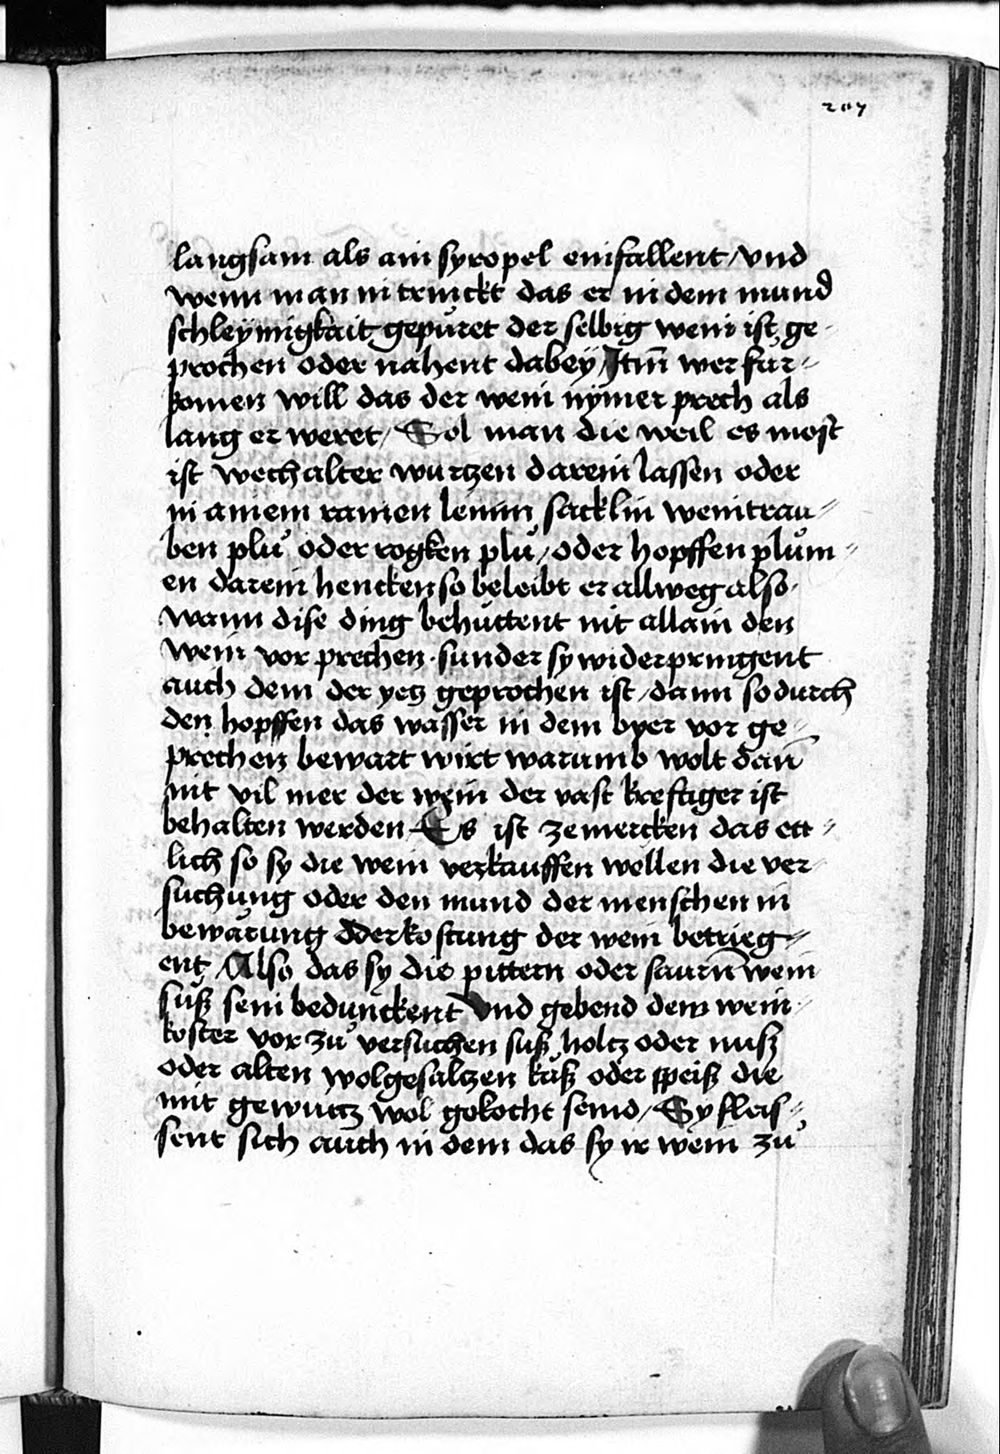 207
langsam als ain syropel einfallent / vnd
wenn man in trinckt das er in dem mund
schleymigkait gepüret der selbig wein ist ge-
prochen oder nahent dabey / Itm̄ wer für-
komen will das der wein nymer prech als
lang er weret / Sol man die weil es most
ist wechalter wurtzen darein lassen oder
in ainem rainen leinin sacklin weintrau-
ben plůͤ oder rogken plůͤ / oder hopffen plům-
en darein hencken so beleibt er allweg also ·
wann dise ding behüttent nit allain den
wein vor prechen · sunder sy widerpringent
auch dem der yetz geprochen ist / dann so durch
den hopffen das wasser in dem byer vor ge-
prechen bewart wirt warumb wolt dan̄
nit vil mer der wein der vast kreftiger ist
behalten werden Es ist zemercken das ett-
lich so sy die wein verkauffen wellen die ver-
suchung oder den mund der menschen in
bewärung oder kostung der wein betrieg-
ent / Also das sy die pittern oder saurn̄ wein
süß sein bedunckent Vnd gebend dem wein-
koster vor zů versuchen süß holtz oder nuß
oder alten wolgesaltzen käß oder speiß die
mit gewurtz wol gekocht seind / Sy fleis-
sent sich auch in dem das sy ir wein zů